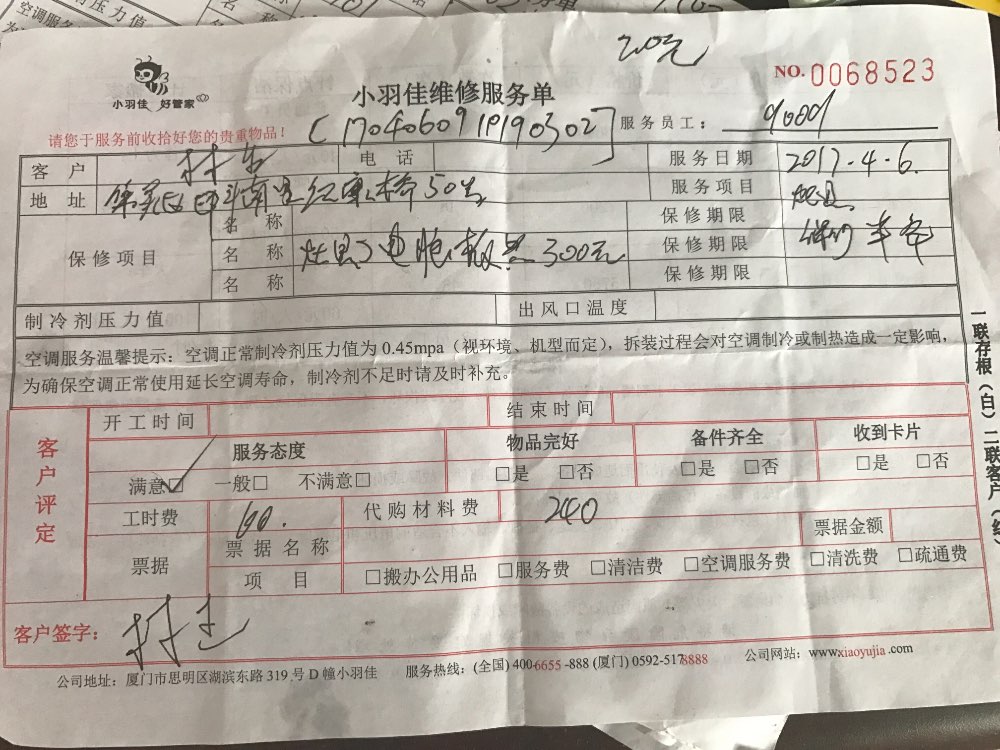 空调服
压力值
20元
小羽佳 好管家
NO.0068523
小羽佳维修服务单
请您于服务前收拾好您的贵重物品！
[17040609191903 02]
服务员工：
客户
电话
服务日期 2017.4.6.
地址
50号
服务项目
保修项目
名称
保修期限
名称 电脑板 300元
保修期限 半年
名称
保修期限
制冷剂压力值
出风口温度
空调服务温馨提示：空调正常制冷剂压力值为0.45mpa（视环境、机型而定），拆装过程会对空调制冷或制热造成一定影响，
为确保空调正常使用延长空调寿命，制冷剂不足时请及时补充。
客户评定
开工时间
结束时间
服务态度 物品完好 备件齐全 收到卡片
满意☑ 一般□ 不满意□ □是 □否 □是 □否 □是 □否
工时费 60. 代购材料费 240
票据 票据名称 票据金额
项目 □搬办公用品 □服务费 □清洁费 □空调服务费 □清洗费 □疏通费
客户签字：
公司地址：厦门市思明区湖滨东路319号D幢小羽佳 服务热线：(全国) 4006655-888 (厦门) 0592-5178888 公司网站：www.xiaoyujia.com
一联存根（白）二联客户（红）